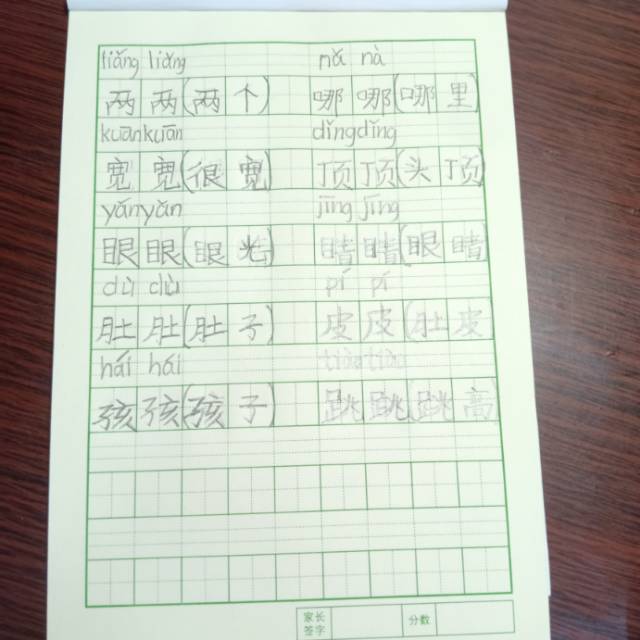 liǎng liǎng nǎ nà
两 两 (两 个) 哪 哪 (哪 里)
kuān kuān dǐng dǐng
宽 宽 (很 宽) 顶 顶 (头 顶)
yǎn yǎn jīng jīng
眼 眼 (眼 光) 睛 睛 (眼 睛)
dù dù pí pí
肚 肚 (肚 子) 皮 皮 (肚 皮)
hái hái tiào tiào
孩 孩 (孩 子) 跳 跳 (跳 高)
家长签字 分数